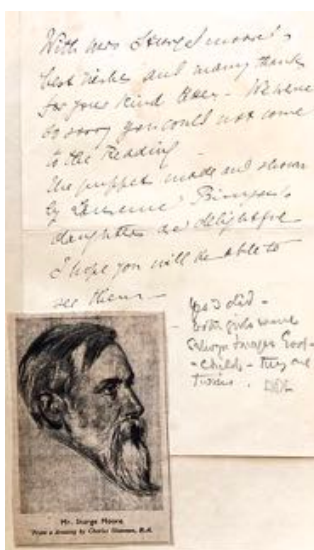 With Mrs Sturge Moore's
best wishes and many thanks
for your kind . We were
so sorry you could not come
to the Reading
The puppets made and shown
by Laurence Binyon's
daughters are delightful
I hope you will be able to
see them –
Yes I did –
both girls were
Selwyn Image's God-
-childs – they are
twins.
Mr. Sturge Moore
From a drawing by Charles Shannon, R.A.